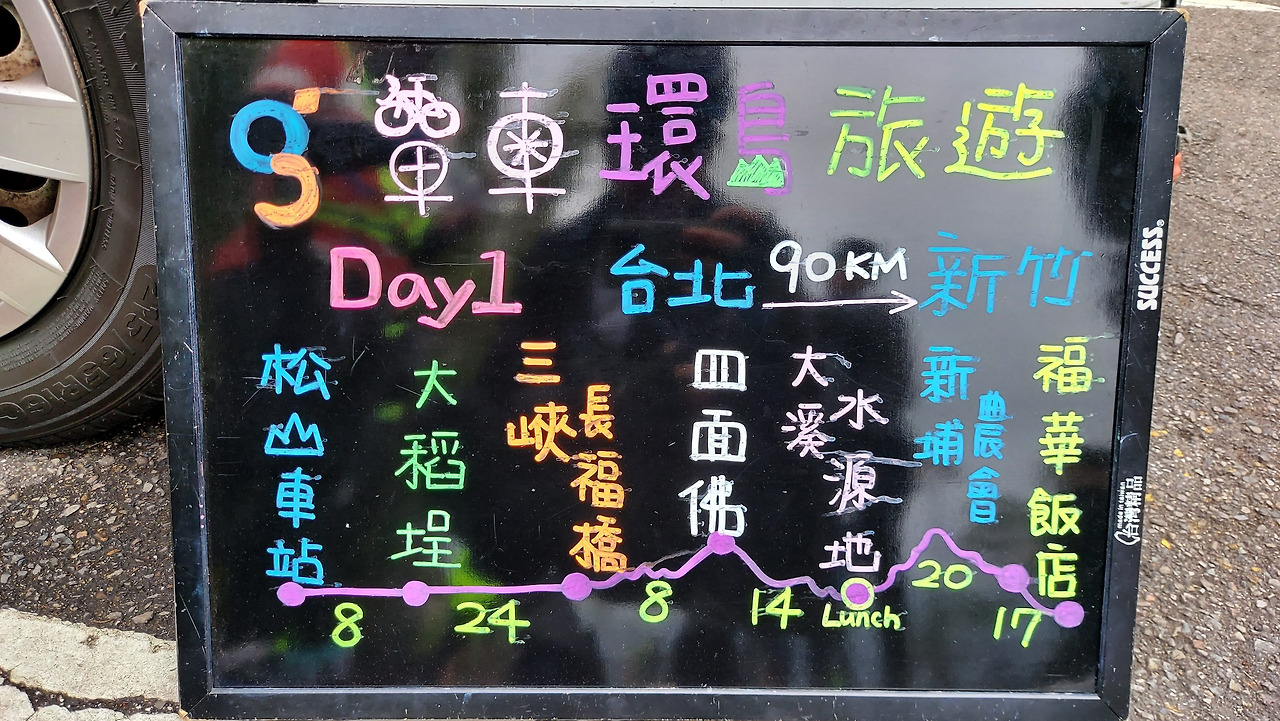 單車環島旅遊
Day1 台北 90KM 新竹
松山車站
大稻埕
三峽
長福橋
四面佛
大溪
水源地
新埔
農會
福華飯店
8 24 8 14 Lunch 20 17
SUCCESS®
台灣精品
215/65R16C